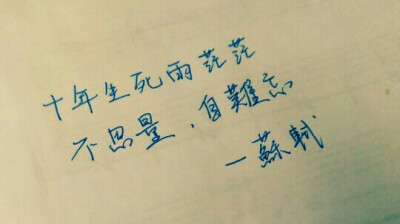 十年生死兩茫茫
不思量，自難忘
—蘇軾